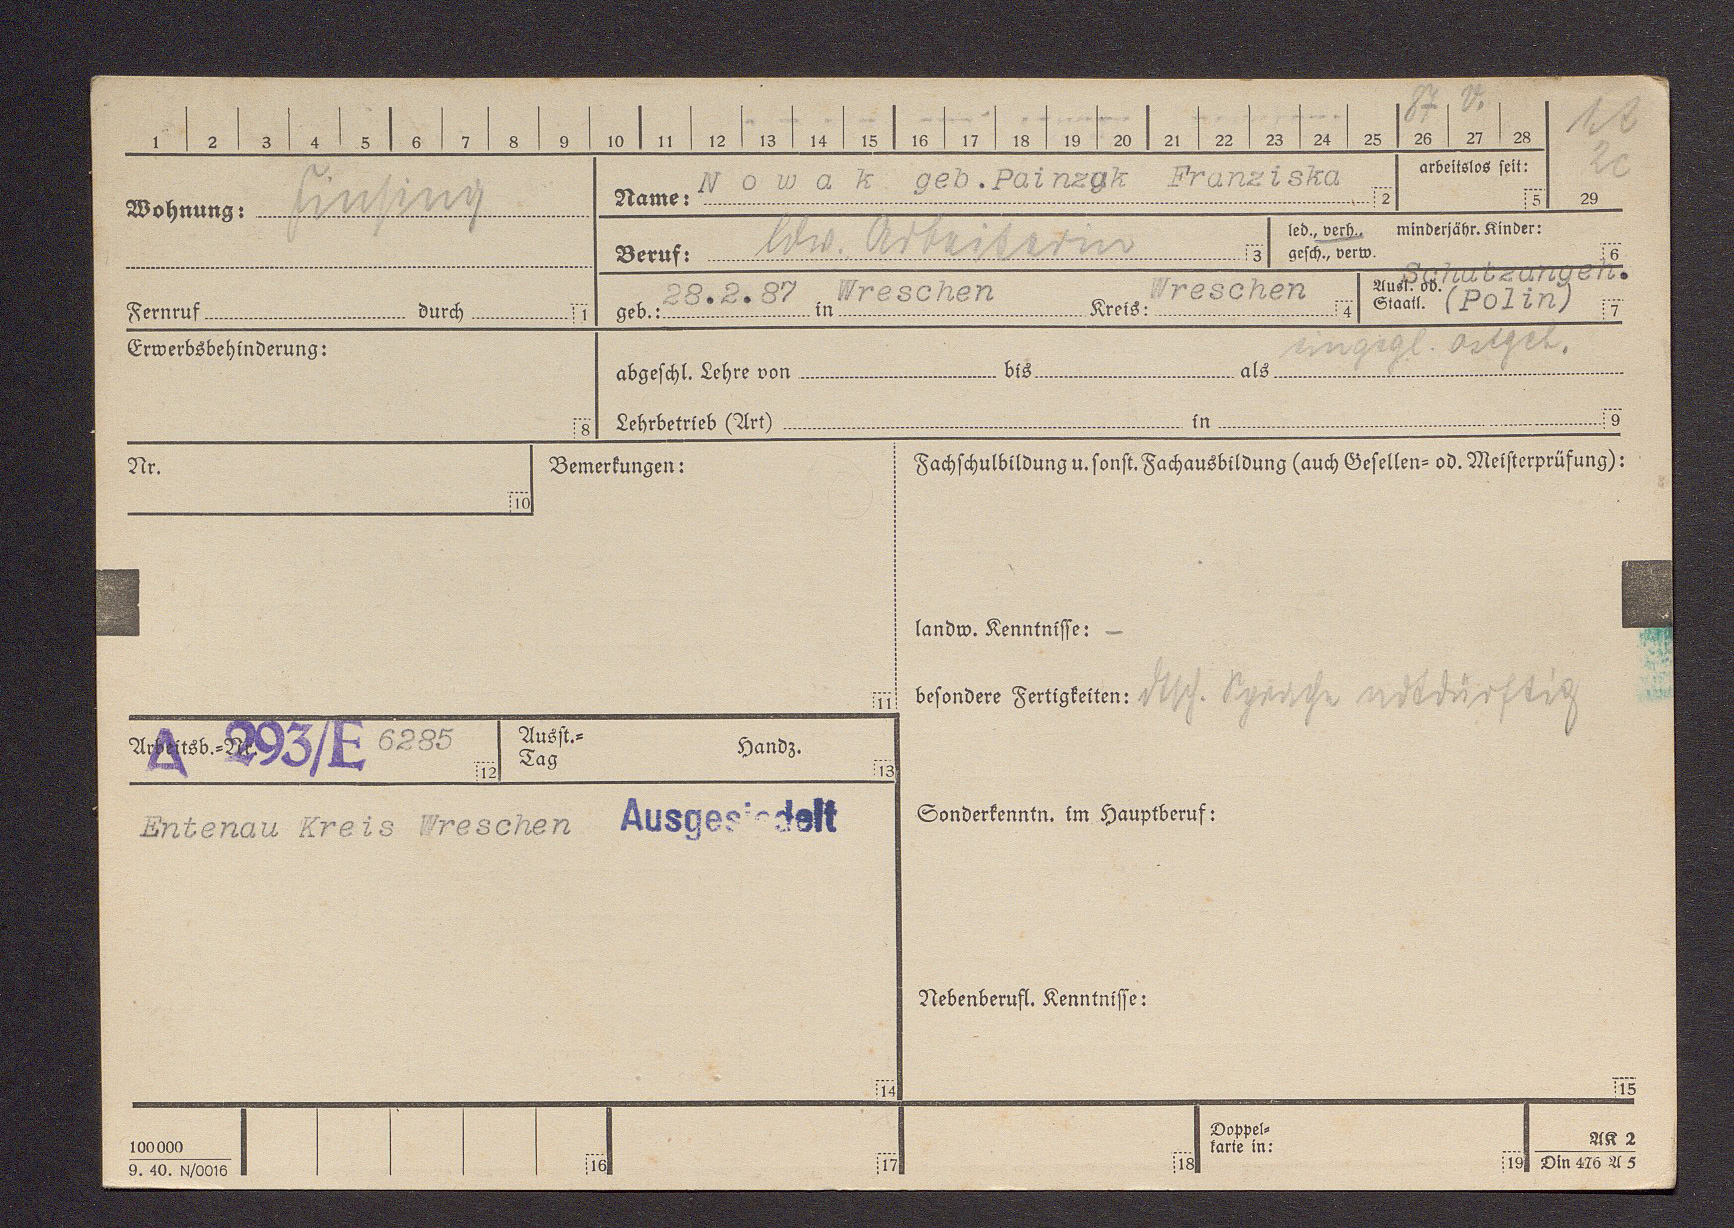 87 V.
1 2 3 4 5 6 7 8 9 10 11 12 13 14 15 16 17 18 19 20 21 22 23 24 25 26 27 28
2c
29
Wohnung: Finsing
Name: Nowak geb.Painzak Franziska 2
arbeitslos seit: 5
Beruf: ldw. Arbeiterin 3
led., verh., gesch., verw.
minderjähr. Kinder: 6
Fernruf durch 1
geb.: 28.2.87 in Wreschen Kreis: Wreschen 4
Ausl. od. Staatl. Schutzangeh. (Polin) 7
Erwerbsbehinderung: 8
eingegl. Ostgeb.
abgeschl. Lehre von bis als
Lehrbetrieb (Art) in 9
Nr. 10
Bemerkungen: 11
Fachschulbildung u. sonst. Fachausbildung (auch Gesellen- od. Meisterprüfung):
landw. Kenntnisse: —
besondere Fertigkeiten: dtsch. Sprache notdürftig
Arbeitsb.-Nr. A 293/E 6285 12
Ausst.-Tag Handz. 13
Entenau Kreis Wreschen Ausgesiedelt
Sonderkenntn. im Hauptberuf:
Nebenberufl. Kenntnisse:
14
15
100000
9. 40. N/0016
16 17 18
Doppelkarte in: 19
AK 2
Din 476 A 5